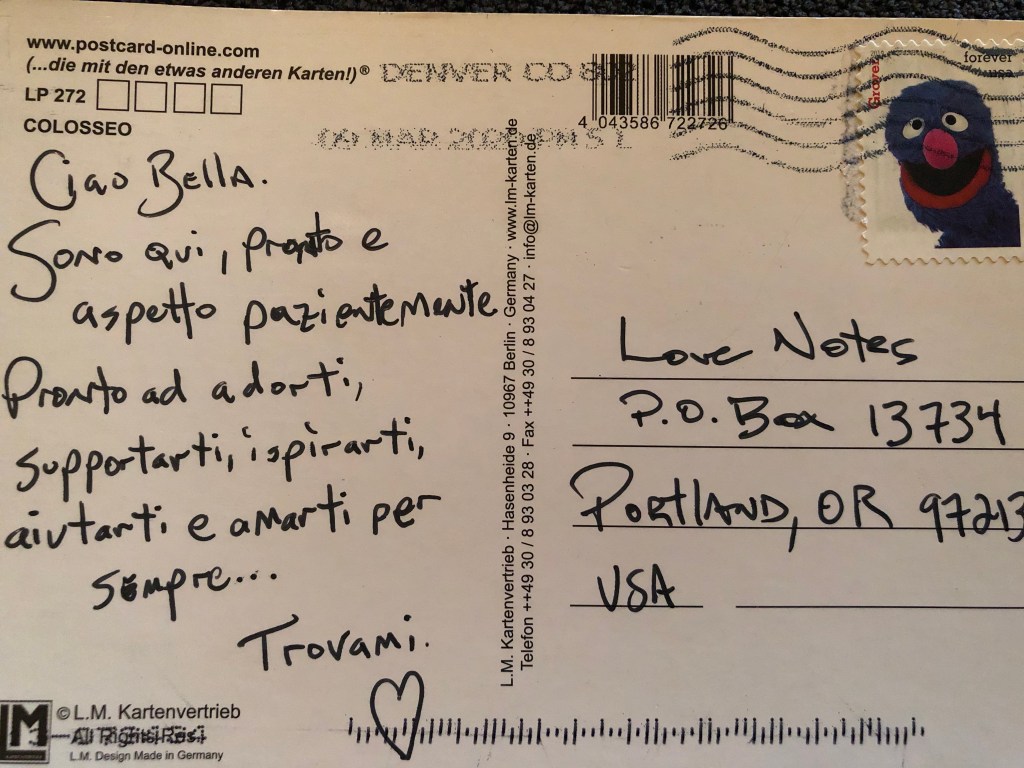 www.postcard-online.com
(...die mit den etwas anderen Karten!)®
LP 272
COLOSSEO
DENVER CO 802
09 MAR 2020 PM 5 L
4 043586 722726
Grover
forever
usa
Ciao Bella.
Sono qui, pronto e
aspetto pazientemente
Pronto ad adorti,
supportarti, ispirarti,
aiutarti e amarti per
sempre...
Trovami.
L.M. Kartenvertrieb · Hasenheide 9 · 10967 Berlin · Germany · www.lm-karten.de
Telefon ++49 30 / 8 93 03 28 · Fax ++49 30 / 8 93 04 27 · info@lm-karten.de
Love Notes
P.O. Box 13734
Portland, OR 97213
USA
LM
© L.M. Kartenvertrieb
All Rights Res.
L.M. Design Made in Germany